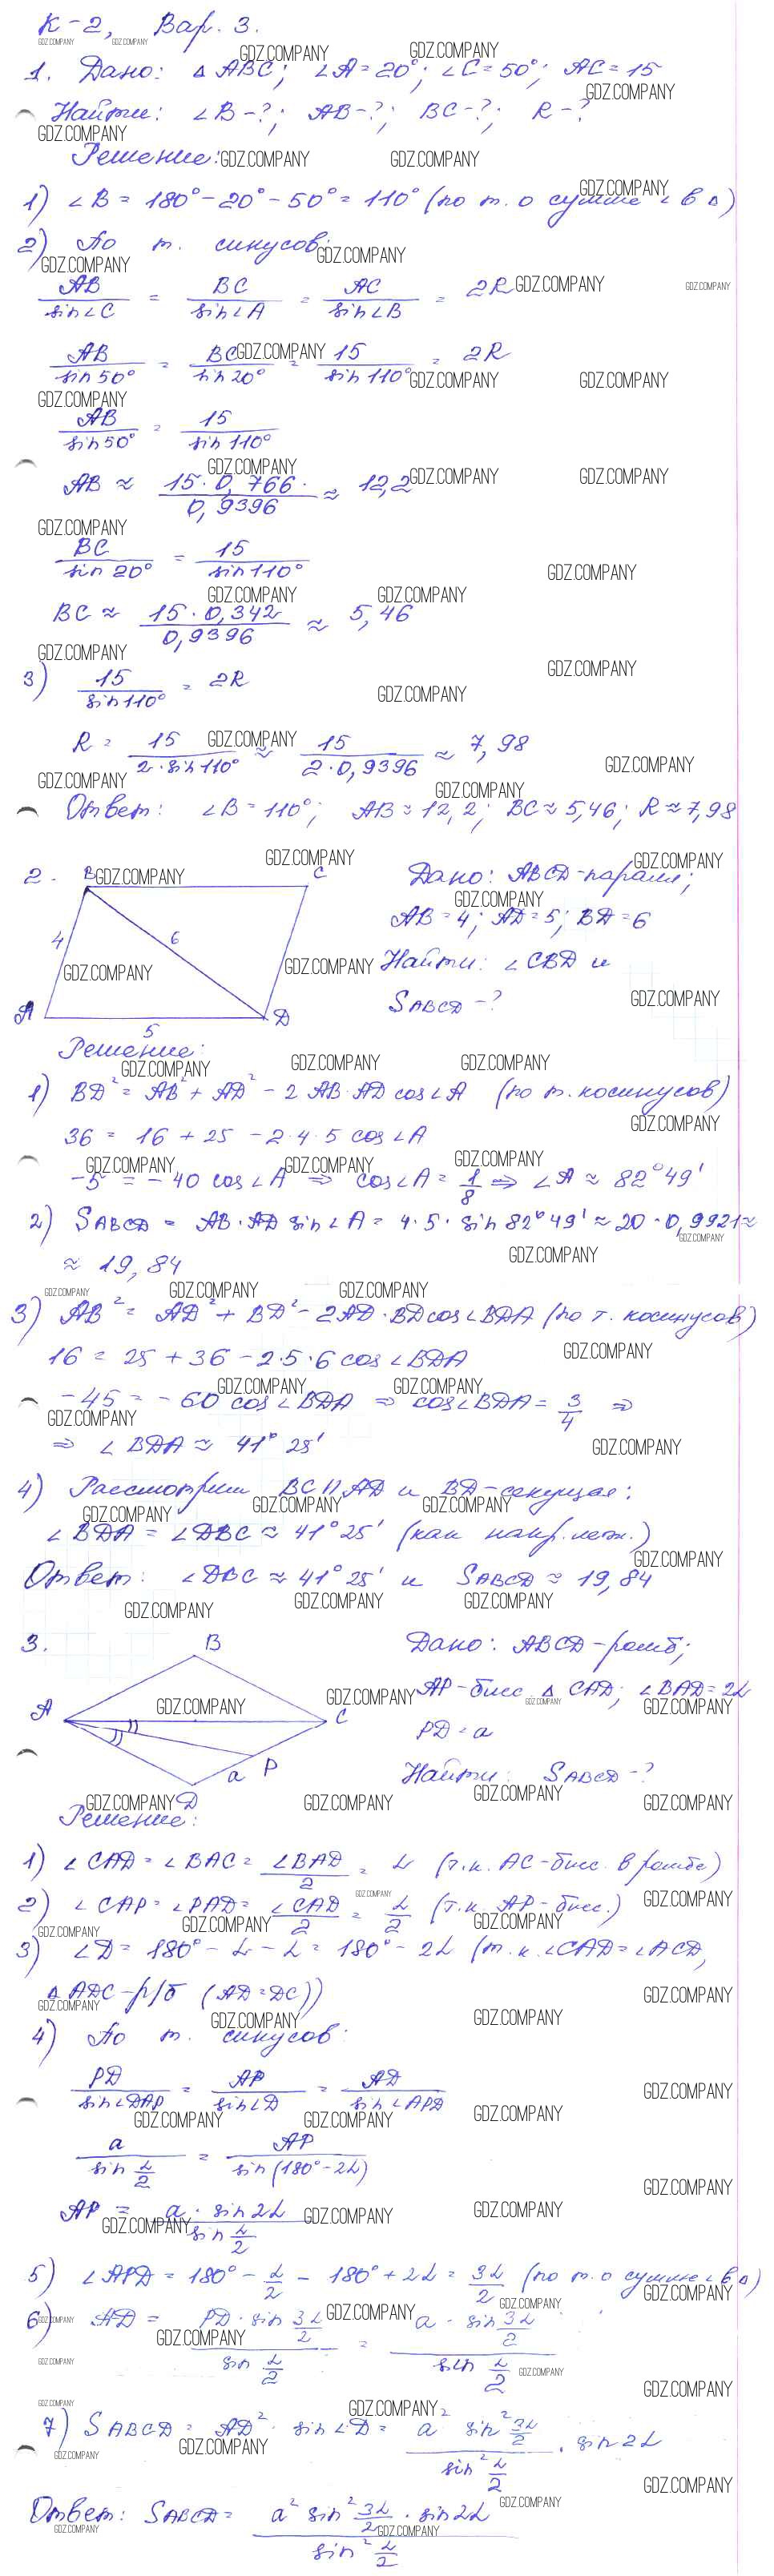 К-2, Вар. 3.
1. Дано: △ ABC; ∠A = 20°; ∠C = 50°; AC = 15
Найти: ∠B - ?; AB - ?; BC - ?; R - ?
Решение:
1) ∠B = 180° - 20° - 50° = 110° (по т. о сумме ∠ в △)
2) По т. синусов:
AB/sin∠C = BC/sin∠A = AC/sin∠B = 2R
AB/sin 50° = BC/sin 20° = 15/sin 110° = 2R
AB/sin 50° = 15/sin 110°
AB ≈ 15·0,766/0,9396 ≈ 12,2
BC/sin 20° = 15/sin 110°
BC ≈ 15·0,342/0,9396 ≈ 5,46
3) 15/sin 110° = 2R
R = 15/2·sin 110° ≈ 15/2·0,9396 ≈ 7,98
Ответ: ∠B = 110°; AB ≈ 12,2; BC ≈ 5,46; R ≈ 7,98
2. B C Дано: ABCD - паралл;
AB = 4; AD = 5; BD = 6
4 6 Найти: ∠CBD и
SABCD - ?
A D
5
Решение:
1) BD² = AB² + AD² - 2 AB·AD cos∠A (по т. косинусов)
36 = 16 + 25 - 2·4·5 cos∠A
-5 = -40 cos∠A ⇒ cos∠A = 1/8 ⇒ ∠A ≈ 82°49'
2) SABCD = AB·AD sin∠A = 4·5·sin 82°49' ≈ 20·0,9921 ≈
≈ 19,84
3) AB² = AD² + BD² - 2AD·BD cos∠BDA (по т. косинусов)
16 = 25 + 36 - 2·5·6 cos∠BDA
-45 = -60 cos∠BDA ⇒ cos∠BDA = 3/4 ⇒
⇒ ∠BDA ≈ 41°25'
4) Рассмотрим BC || AD и BD - секущая:
∠BDA = ∠DBC ≈ 41°25' (как накр. леж.)
Ответ: ∠DBC ≈ 41°25' и SABCD ≈ 19,84
3. B Дано: ABCD - ромб;
A C AP - бисс △ CAD; ∠BAD = 2α
PD = a
a P
Найти: SABCD - ?
D
Решение:
1) ∠CAD = ∠BAC = ∠BAD/2 = α (т.к. AC - бисс. в ромбе)
2) ∠CAP = ∠PAD = ∠CAD/2 = α/2 (т.к. AP - бисс.)
3) ∠D = 180° - α - α = 180° - 2α (т.к. ∠CAD = ∠ACD,
△ ADC - р/б (AD = DC))
4) По т. синусов:
PD/sin∠DAP = AP/sin∠D = AD/sin∠APD
a/sin α/2 = AP/sin(180° - 2α)
AP = a·sin 2α/sin α/2
5) ∠APD = 180° - α/2 - 180° + 2α = 3α/2 (по т. о сумме ∠ в △)
6) AD = PD·sin 3α/2 / sin α/2 = a·sin 3α/2 / sin α/2
7) SABCD = AD²·sin∠D = a² sin² 3α/2 / sin² α/2 · sin 2α
Ответ: SABCD = a² sin² 3α/2 · sin 2α / sin² α/2
GDZ.COMPANY